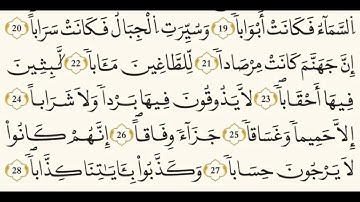 السَّمَآءُ فَكَانَتْ أَبْوَٰباً 19 وَسُيِّرَتِ الْجِبَالُ فَكَانَتْ سَرَاباً 20
إِنَّ جَهَنَّمَ كَانَتْ مِرْصَاداً 21 لِّلطَّٰغِينَ مَـَٔاباً 22 لَّٰبِثِينَ
فِيهَآ أَحْقَاباً 23 لَّا يَذُوقُونَ فِيهَا بَرْداً وَلَا شَرَاباً 24
إِلَّا حَمِيماً وَغَسَّاقاً 25 جَزَآءً وِفَاقاً 26 إِنَّهُمْ كَانُواْ
لَا يَرْجُونَ حِسَاباً 27 وَكَذَّبُواْ بِـَٔايَٰتِنَا كِذَّاباً 28